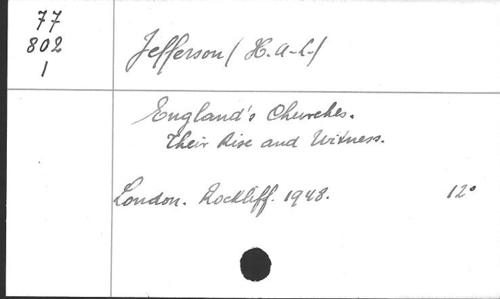 77
802
1
Jefferson (H.A.L.)
England's Churches.
Their Rise and Witness.
London. Rockliff. 1948. 12°